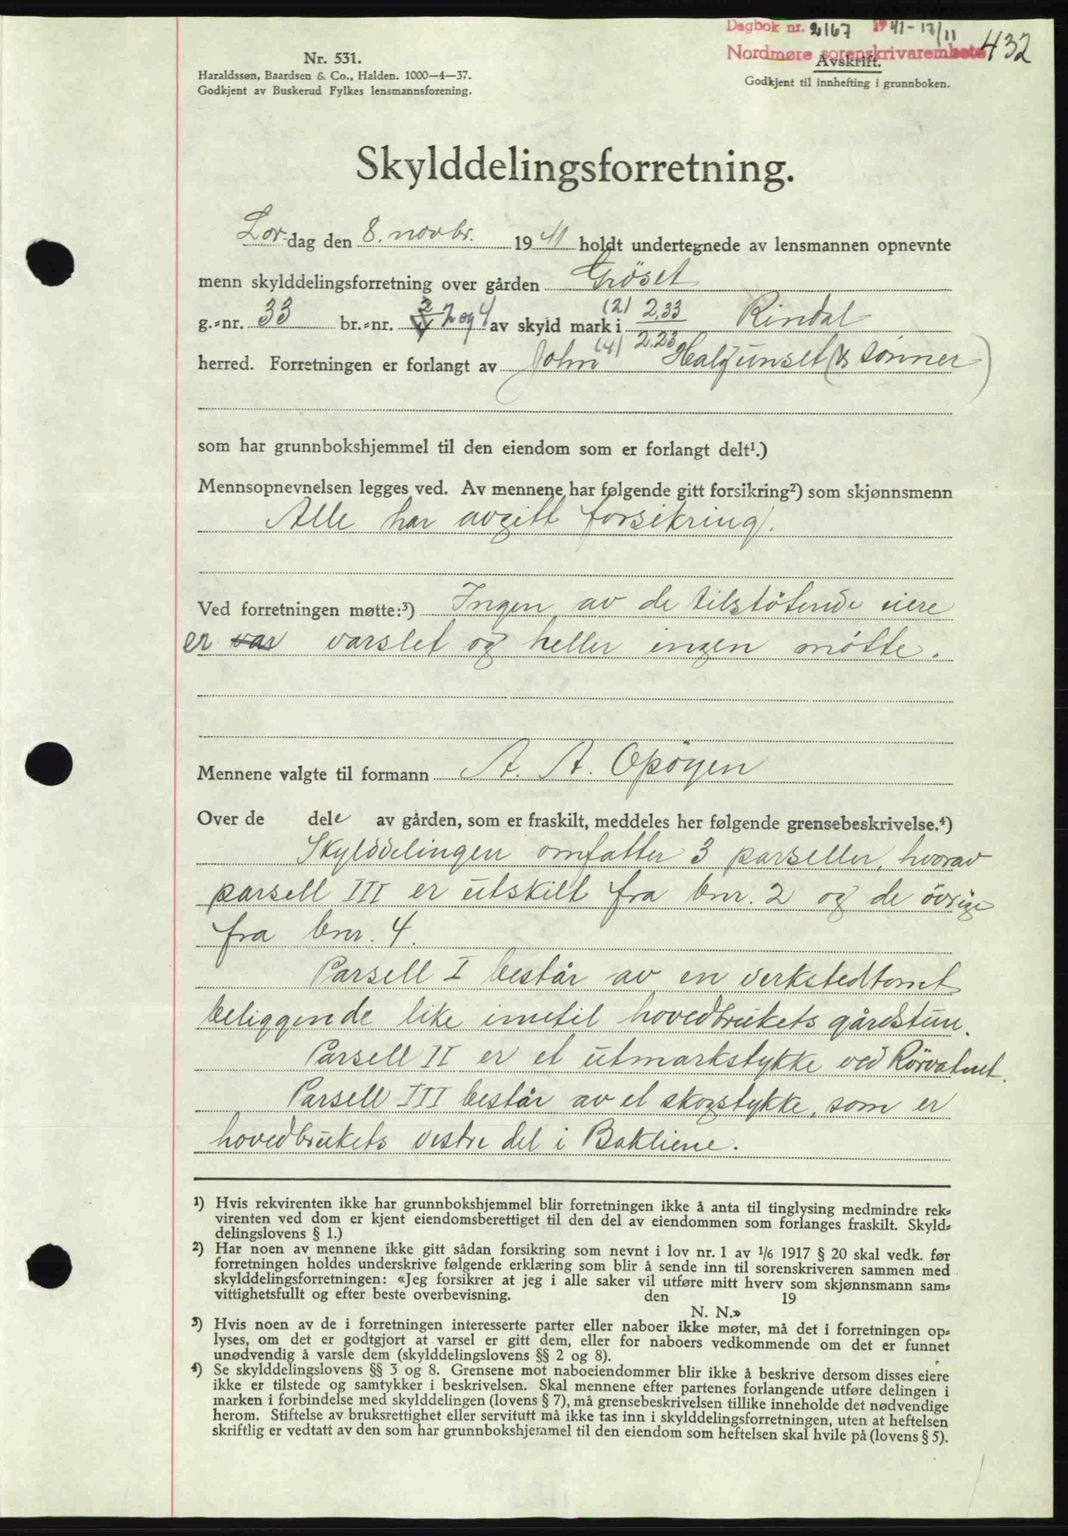 Dagbok nr. 2167 1941-17/11
Nordmøre sorenskrivarembete 432
Nr. 531.
Haraldssøn, Baardsen & Co., Halden. 1000—4—37.
Godkjent av Buskerud Fylkes lensmannsforening.
Avskrift.
Godkjent til innhefting i grunnboken.
Skylddelingsforretning.
Lør-dag den 8. novbr. 1941 holdt undertegnede av lensmannen opnevnte
menn skylddelingsforretning over gården Gröset
g.-nr. 33 br.-nr. 2 og 4 av skyld mark i (2) 2,33 Rindal
(4) 2.23
herred. Forretningen er forlangt av John Halgunset (& sönner)
som har grunnbokshjemmel til den eiendom som er forlangt delt¹.)
Mennsopnevnelsen legges ved. Av mennene har følgende gitt forsikring²) som skjønnsmenn
Alle har avgitt forsikring.
Ved forretningen møtte:³) Ingen av de tilstötende eiere
er varslet og heller ingen mötte.
Mennene valgte til formann A. A. Opöyen
Over de dele av gården, som er fraskilt, meddeles her følgende grensebeskrivelse.⁴)
Skylddelingen omfatter 3 parseller, hvorav
parsell III er utskilt fra bnr. 2 og de övrige
fra bnr. 4.
Parsell I består av en verkstedtomt
beliggende like inntil hovedbrukets gårdstun.
Parsell II er et utmarkstykke ved Rörvatnet.
Parsell III består av et skogstykke, som er
hovedbrukets vestre del i Bakliene.
¹) Hvis rekvirenten ikke har grunnbokshjemmel blir forretningen ikke å anta til tinglysing medmindre rek-
virenten ved dom er kjent eiendomsberettiget til den del av eiendommen som forlanges fraskilt. Skyld-
delingslovens § 1.)
²) Har noen av mennene ikke gitt sådan forsikring som nevnt i lov nr. 1 av 1/6 1917 § 20 skal vedk. før
forretningen holdes underskrive følgende erklæring som blir å sende inn til sorenskriveren sammen med
skylddelingsforretningen: «Jeg forsikrer at jeg i alle saker vil utføre mitt hverv som skjønnsmann sam-
vittighetsfullt og efter beste overbevisning. den 19
N. N.»
³) Hvis noen av de i forretningen interesserte parter eller naboer ikke møter, må det i forretningen op-
lyses, om det er godtgjort at varsel er gitt dem, eller for naboers vedkommende om det er funnet
unødvendig å varsle dem (skylddelingslovens §§ 2 og 8).
⁴) Se skylddelingslovens §§ 3 og 8. Grensene mot naboeiendommer blir ikke å beskrive dersom disses eiere
ikke er tilstede og samtykker i beskrivelsen. Skal mennene efter partenes forlangende utføre delingen i
marken i forbindelse med skylddelingen (lovens § 7), må grensebeskrivelsen tillike inneholde det nødvendige
herom. Stiftelse av bruksrettighet eller servitutt må ikke tas inn i skylddelingsforretningen, uten at heftelsen
skriftlig er vedtatt av den som har grunnbokshjemmel til den eiendom som heftelsen skal hvile på (lovens § 5).